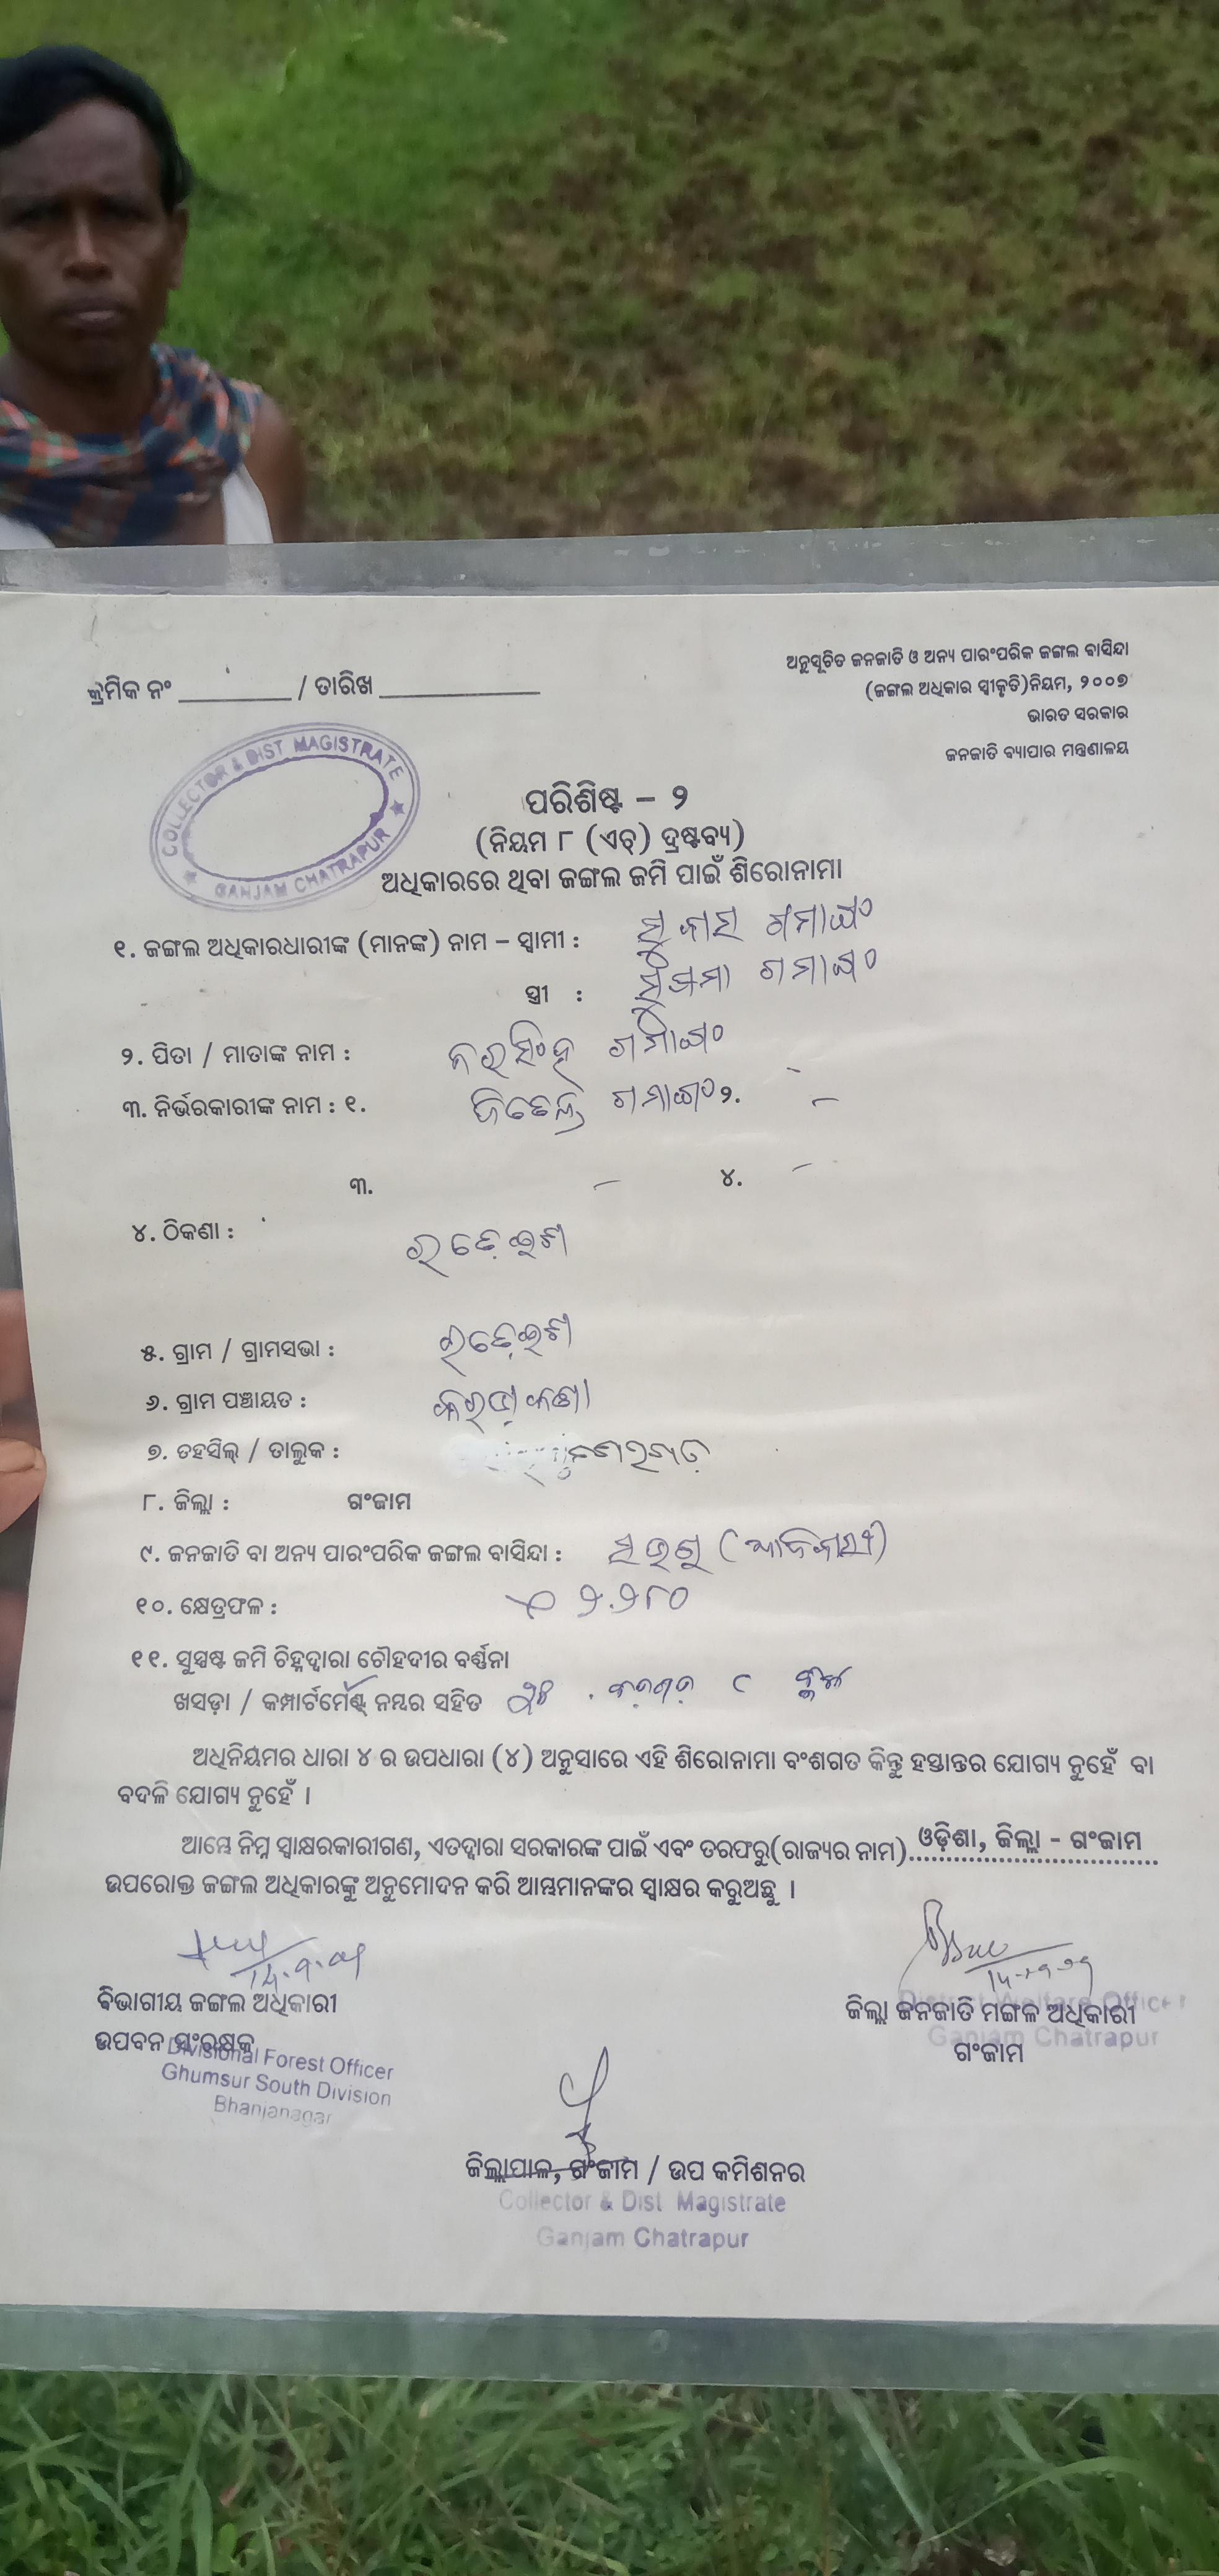 ଅନୁସୂଚିତ ଜନଜାତି ଓ ଅନ୍ୟ ପାରଂପରିକ ଜଙ୍ଗଲ ବାସିନ୍ଦା
(ଜଙ୍ଗଲ ଅଧିକାର ସ୍ୱୀକୃତି)ନିୟମ, ୨୦୦୭
ଭାରତ ସରକାର
ଜନଜାତି ବ୍ୟାପାର ମନ୍ତ୍ରଣାଳୟ
କ୍ରମିକ ନଂ ________ / ତାରିଖ ____________
COLLECTOR & DIST MAGISTRATE
GANJAM CHATRAPUR
ପରିଶିଷ୍ଟ – ୨
(ନିୟମ ୮ (ଏଚ୍) ଦ୍ରଷ୍ଟବ୍ୟ)
ଅଧିକାରରେ ଥିବା ଜଙ୍ଗଲ ଜମି ପାଇଁ ଶିରୋନାମା
୧. ଜଙ୍ଗଲ ଅଧିକାରଧାରୀଙ୍କ (ମାନଙ୍କ) ନାମ – ସ୍ୱାମୀ : ସୁବାସ ଗମାଙ୍ଗ
ସ୍ତ୍ରୀ : ସୁଷମା ଗମାଙ୍ଗ
୨. ପିତା / ମାତାଙ୍କ ନାମ : ନରସିଂହ ଗମାଙ୍ଗ
୩. ନିର୍ଭରକାରୀଙ୍କ ନାମ : ୧. ଗମାଙ୍ଗ ୨. –
୩. – ୪. –
୪. ଠିକଣା :
୫. ଗ୍ରାମ / ଗ୍ରାମସଭା :
୬. ଗ୍ରାମ ପଞ୍ଚାୟତ :
୭. ତହସିଲ୍ / ତାଲୁକ :
୮. ଜିଲ୍ଲା : ଗଂଜାମ
୯. ଜନଜାତି ବା ଅନ୍ୟ ପାରଂପରିକ ଜଙ୍ଗଲ ବାସିନ୍ଦା : (ଆଦିବାସୀ)
୧୦. କ୍ଷେତ୍ରଫଳ : ୨.୨୮୦
୧୧. ସୁସ୍ପଷ୍ଟ ଜମି ଚିହ୍ନଦ୍ୱାରା ଚୌହଦୀର ବର୍ଣ୍ଣନା
ଖସଡ଼ା / କମ୍ପାର୍ଟମେଣ୍ଟ ନମ୍ବର ସହିତ
ଅଧିନିୟମର ଧାରା ୪ ର ଉପଧାରା (୪) ଅନୁସାରେ ଏହି ଶିରୋନାମା ବଂଶଗତ କିନ୍ତୁ ହସ୍ତାନ୍ତର ଯୋଗ୍ୟ ନୁହେଁ ବା
ବଦଳି ଯୋଗ୍ୟ ନୁହେଁ ।
ଆମ୍ଭେ ନିମ୍ନ ସ୍ୱାକ୍ଷରକାରୀଗଣ, ଏତଦ୍ୱାରା ସରକାରଙ୍କ ପାଇଁ ଏବଂ ତରଫରୁ(ରାଜ୍ୟର ନାମ) ଓଡ଼ିଶା, ଜିଲ୍ଲା - ଗଂଜାମ
ଉପରୋକ୍ତ ଜଙ୍ଗଲ ଅଧିକାରଙ୍କୁ ଅନୁମୋଦନ କରି ଆମ୍ଭମାନଙ୍କର ସ୍ୱାକ୍ଷର କରୁଅଛୁ ।
ବିଭାଗୀୟ ଜଙ୍ଗଲ ଅଧିକାରୀ
ଉପବନ ସଂରକ୍ଷକ
Divisional Forest Officer
Ghumsur South Division
Bhanjanagar
District Welfare Officer
ଜିଲ୍ଲା ଜନଜାତି ମଙ୍ଗଳ ଅଧିକାରୀ
Ganjam Chatrapur
ଗଂଜାମ
ଜିଲ୍ଲାପାଳ, ଗଂଜାମ / ଉପ କମିଶନର
Collector & Dist Magistrate
Ganjam Chatrapur